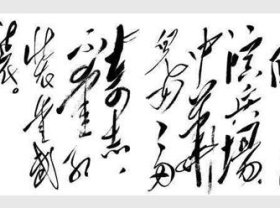 演兵場。
中華
兒女多
奇志，
不愛紅
裝愛武
裝。